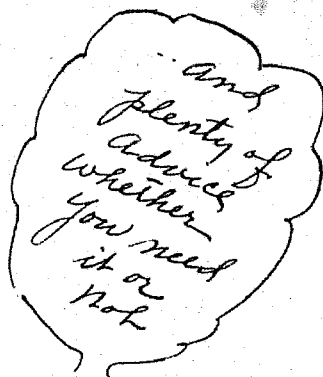 ..and
plenty of
advice
whether
you need
it or
not